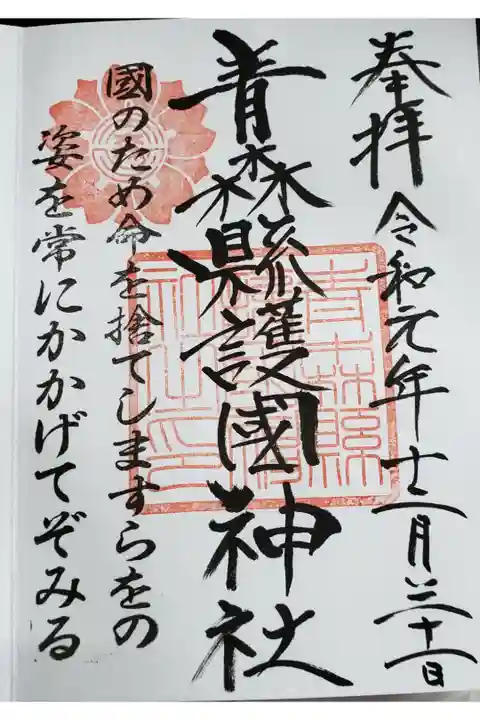 奉拝 令和元年十二月三十一日
青森縣護國神社
國のため命を捨てしますらをの
姿を常にかかげてぞみる
青森縣
社之印